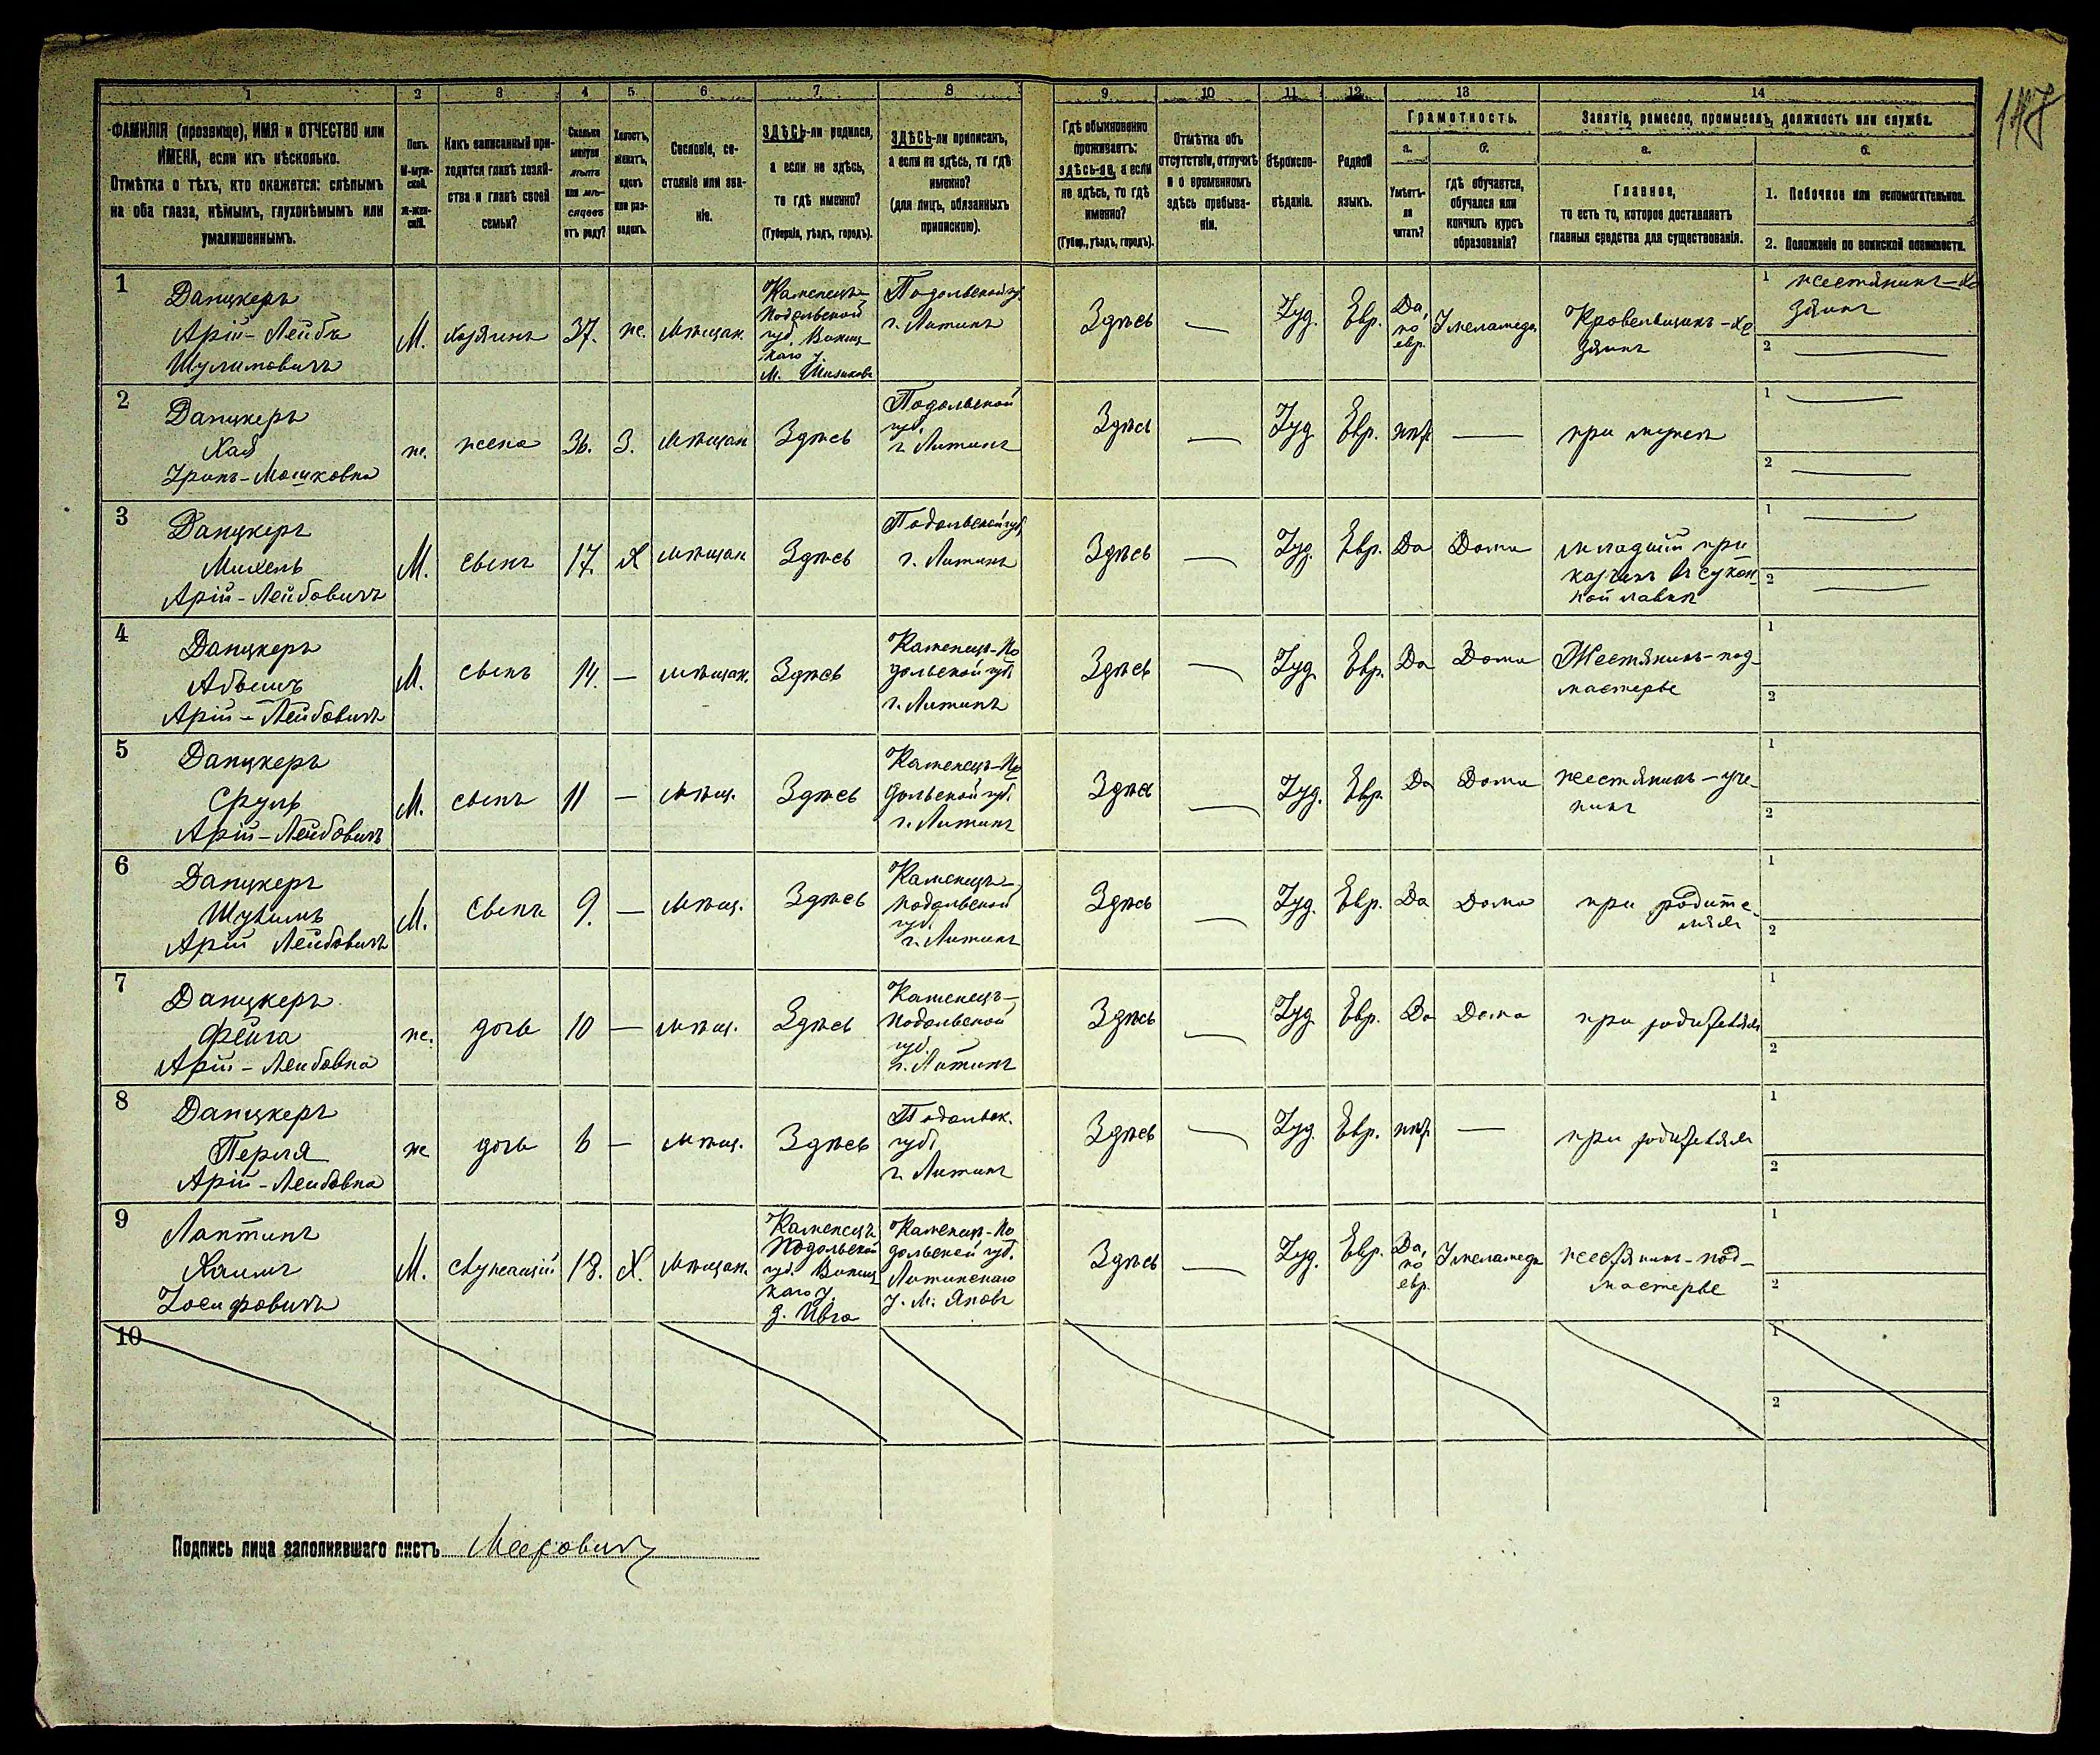 147
1 2 3 4 5 6 7 8 9 10 11 12 13 14
ФАМИЛІЯ (прозвище), ИМЯ и ОТЧЕСТВО или
ИМЕНА, если ихъ нѣсколько.
Отмѣтка о тѣхъ, кто окажется: слѣпымъ
на оба глаза, нѣмымъ, глухонѣмымъ или
умалишеннымъ.
Полъ.
М-муж-
ской.
Ж-жен-
скій.
Какъ записанный при-
ходится главѣ хозяй-
ства и главѣ своей
семьи?
Сколько
минуло
лѣтъ
или мѣ-
сяцевъ
отъ роду?
Холостъ,
женатъ,
вдовъ
или раз-
веденъ.
Сословіе, со-
стояніе или зва-
ніе.
ЗДѢСЬ-ли родился,
а если не здѣсь,
то гдѣ именно?
(Губернія, уѣздъ, городъ).
ЗДѢСЬ-ли приписанъ,
а если не здѣсь, то гдѣ
именно?
(для лицъ, обязанныхъ
припискою).
Гдѣ обыкновенно
проживаетъ:
здѣсь-ли, а если
не здѣсь, то гдѣ
именно?
(Губер., уѣздъ, городъ).
Отмѣтка объ
отсутствіи, отлучкѣ
и о временномъ
здѣсь пребыва-
ніи.
Вѣроиспо-
вѣданіе.
Родной
языкъ.
Грамотность.
а.
Умѣетъ-
ли
читать?
б.
гдѣ обучается,
обучался или
кончилъ курсъ
образованія?
Занятіе, ремесло, промыселъ, должность или служба.
а.
Главное,
то есть то, которое доставляетъ
главныя средства для существованія.
б.
1. Побочное или вспомогательное.
2. Положеніе по воинской повинности.
1
Данцкеръ
Арій-Лейбъ
Шулимовичъ
М.
хозяинъ
37.
же.
мѣщан.
Каменецъ-
Подольской
губ. Винниц
каго у.
Подольской гу.
г. Литинъ
Здѣсь
—
Іуд.
Евр.
Да,
по
евр.
У меламеда
Кровельщикъ-хо
зяинъ
1 жестяникъ-хо
зяинъ
2 —
2
Данцкеръ
Хая
-Мошковна
же.
жена
36.
З.
мѣщан
Здѣсь
Подольской
губ.
г. Литинъ
Здѣсь
—
Іуд
Евр.
нѣт
—
при мужѣ
1 —
2 —
3
Данцкеръ
Михель
Арій-Лейбовичъ
М.
сынъ
17.
Х
мѣщан
Здѣсь
Подольской губ.
г. Литинъ
Здѣсь
—
Іуд.
Евр.
Да
Дома
младшій при
кащикъ въ сукон
ной лавкѣ
1 —
2 —
4
Данцкеръ
Арій-Лейбовичъ
М.
сынъ
14.
—
мѣщан.
Здѣсь
Каменецъ-По
дольской губ.
г. Литинъ
Здѣсь
—
Іуд
Евр.
Да
Дома
Жестяникъ-под-
мастерье
1
2
5
Данцкеръ
Сруль
Арій-Лейбовичъ
М.
сынъ
11
—
мѣщ.
Здѣсь
Каменецъ-По
дольской губ.
г. Литинъ
Здѣсь
—
Іуд.
Евр.
Да
Дома
жестяникъ-уче-
никъ
1
2
6
Данцкеръ
Шулимъ
Арій Лейбовичъ
М.
сынъ
9.
—
мѣщ.
Здѣсь
Каменецъ-
подольской
губ.
г. Литинъ
Здѣсь
—
Іуд.
Евр.
Да
Дома
при родите-
ляхъ
1
2
7
Данцкеръ
Фейга
Арій-Лейбовна
же.
дочь
10
—
мѣщ.
Здѣсь
Каменецъ-
подольской
губ.
г. Литинъ
Здѣсь
—
Іуд
Евр.
Да
Дома
при родителяхъ
1
2
8
Данцкеръ
Перля
Арій-Лейбовна
же
дочь
6
—
мѣщ.
Здѣсь
Подольск.
губ.
г. Литинъ
Здѣсь
—
Іуд.
Евр.
нѣт
—
при родителяхъ
1
2
9
Лаптинъ
Хаимъ
Іосифовичъ
М.
служащій
18.
Х.
мѣщан.
Каменецъ
Подольской
губ. Винниц
каго у.
Каменец-По
дольской губ.
Литинскаго
у. м. Яновъ
Здѣсь
—
Іуд.
Евр.
Да,
по
евр.
У меламеда
жестяникъ-под-
мастерье
1
2
10
1
2
Подпись лица заполнявшаго листъ